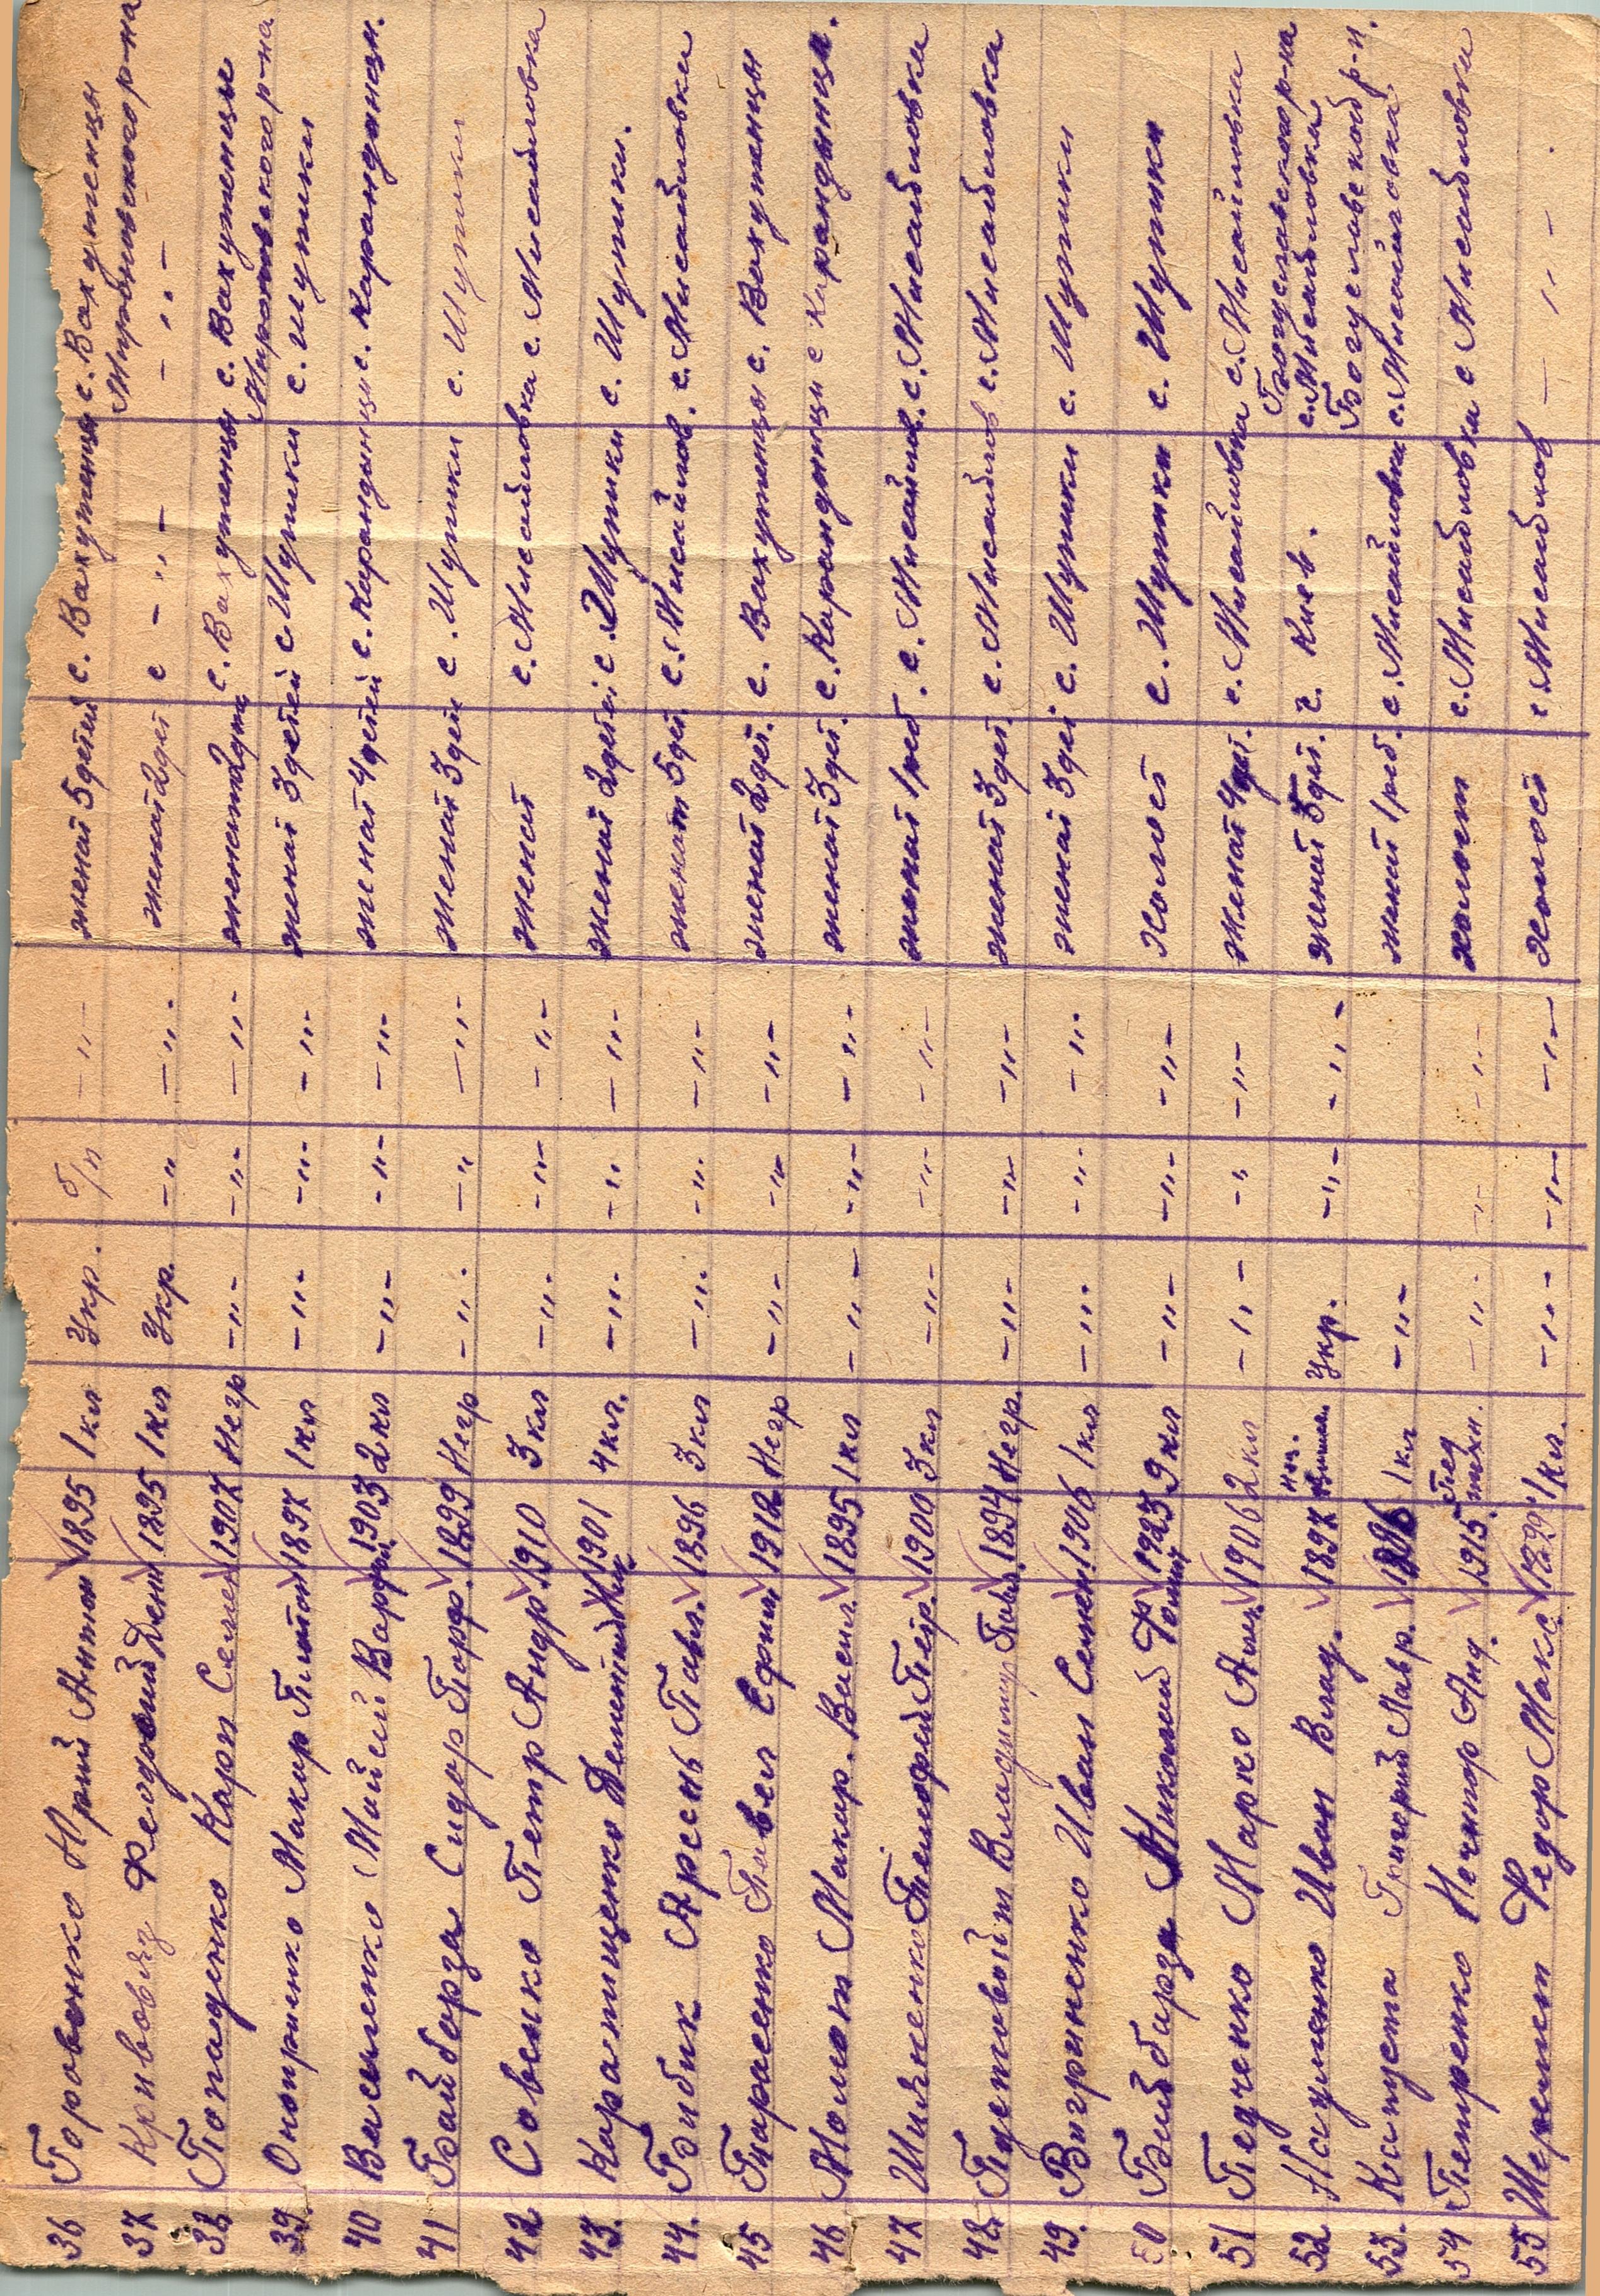 36 Горовенко Юрий Антон 1895 1кл Укр. б/п -"- женат 5детей с. Вахутенцы с. Вахутенцы Мироновского р-на
37 Кривовяз Феодосий Дени 1895 1кл Укр. -"- -"- женат 2дет с -"- -"-
38 Попаденко Карп Семен 1907 Негр -"- -"- -"- женат 2дет с. Вахутенцы с. Вахутенцы Мироновского р-на
39. Оноприенко Макар 1897 1кл -"- -"- -"- женат 3детей с Шупики с. Шупики
40 Василенко 1903 2кл -"- -"- -"- женат 4детей с. Карандинци с. Карандинци.
41 Байборза Сидор Порф. 1899 Негр -"- -"- -"- женат 3дет с. Шупики с. Шупики
42 Совенко Петр Андр. 1910 3кл -"- -"- -"- женат с. Мисайловка с. Мисайловка
43. Каратищенко Дементий 1901 4кл. -"- -"- -"- женат 2дет с. Шупики с. Шупики.
44. Бибик Арсень Павл. 1896 3кл -"- -"- -"- женат 5дет. с. Мисайлов. с. Мисайловки
45 Тарасенко Павел Ефим 1912 Негр -"- -"- -"- женат 2дет. с. Вахутенцы с. Вахутенцы
46 Молот Макар. Васил. 1895 1кл -"- -"- -"- женат 3дет. с. Карандинци с Карандинци.
47 Тимофей Петр. 1900 3кл -"- -"- -"- женат 1реб. с. Мисайлов. с. Мисайловки
48. Пустовойт Владимир Павл. 1894 Негр. -"- -"- -"- женат 3дет. с. Мисайлов с. Мисайловка
49. Вогриненко Иван Семен. 1906 1кл -"- -"- -"- женат 3дет с. Шупики с. Шупики
50 Байбарза Николай Фомич 1923 9кл -"- -"- -"- холост с. Шупики с. Шупики
51 Педченко Марко 1906 2кл -"- -"- -"- женат 4дет. с. Мисайловки с. Мисайловки Богуславского р-на
52 Науменко Иван Влад. 1897 Укр. -"- -"- женат 5дет. г. Киев. с. Мисайловка Богуславской р-н.
53. Капуста Григорий Лавр. 1896 1кл -"- женат 1реб. с. Мисайловки с. Мисайловка
54 Петренко Нечипор Анд. 1915 Пед техн. -"- -"- -"- холост с. Мисайловки с Мисайловки
55 Шеремет Федор Макс 1899 1кл. -"- -"- -"- холост с. Мисайлов -"- -.